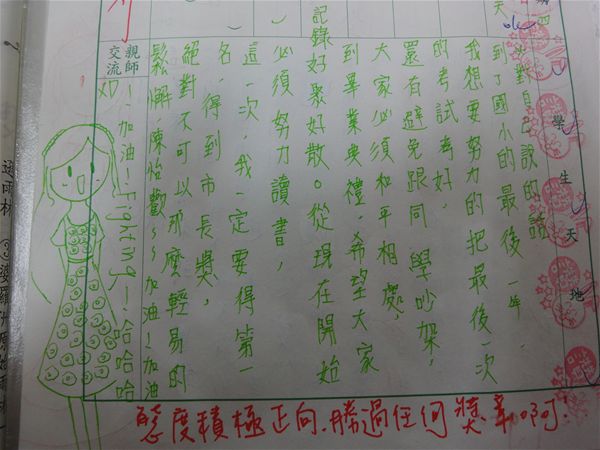 學生天地
對自己說的話
到了國小的最後一年，
我想要努力的把最後一次
的考試考好，
還有避免跟同學吵架，
大家必須和平相處
到畢業典禮，希望大家
記錄
好聚好散。從現在開始
必須努力讀書，
這一次，我一定要得第一
名，得到市長獎，
絕對不可以那麼輕易的
鬆懈，陳怡歡~加油!加油
親師
交流
!加油!Fighting—哈哈哈
態度積極正向，勝過任何獎章啊!